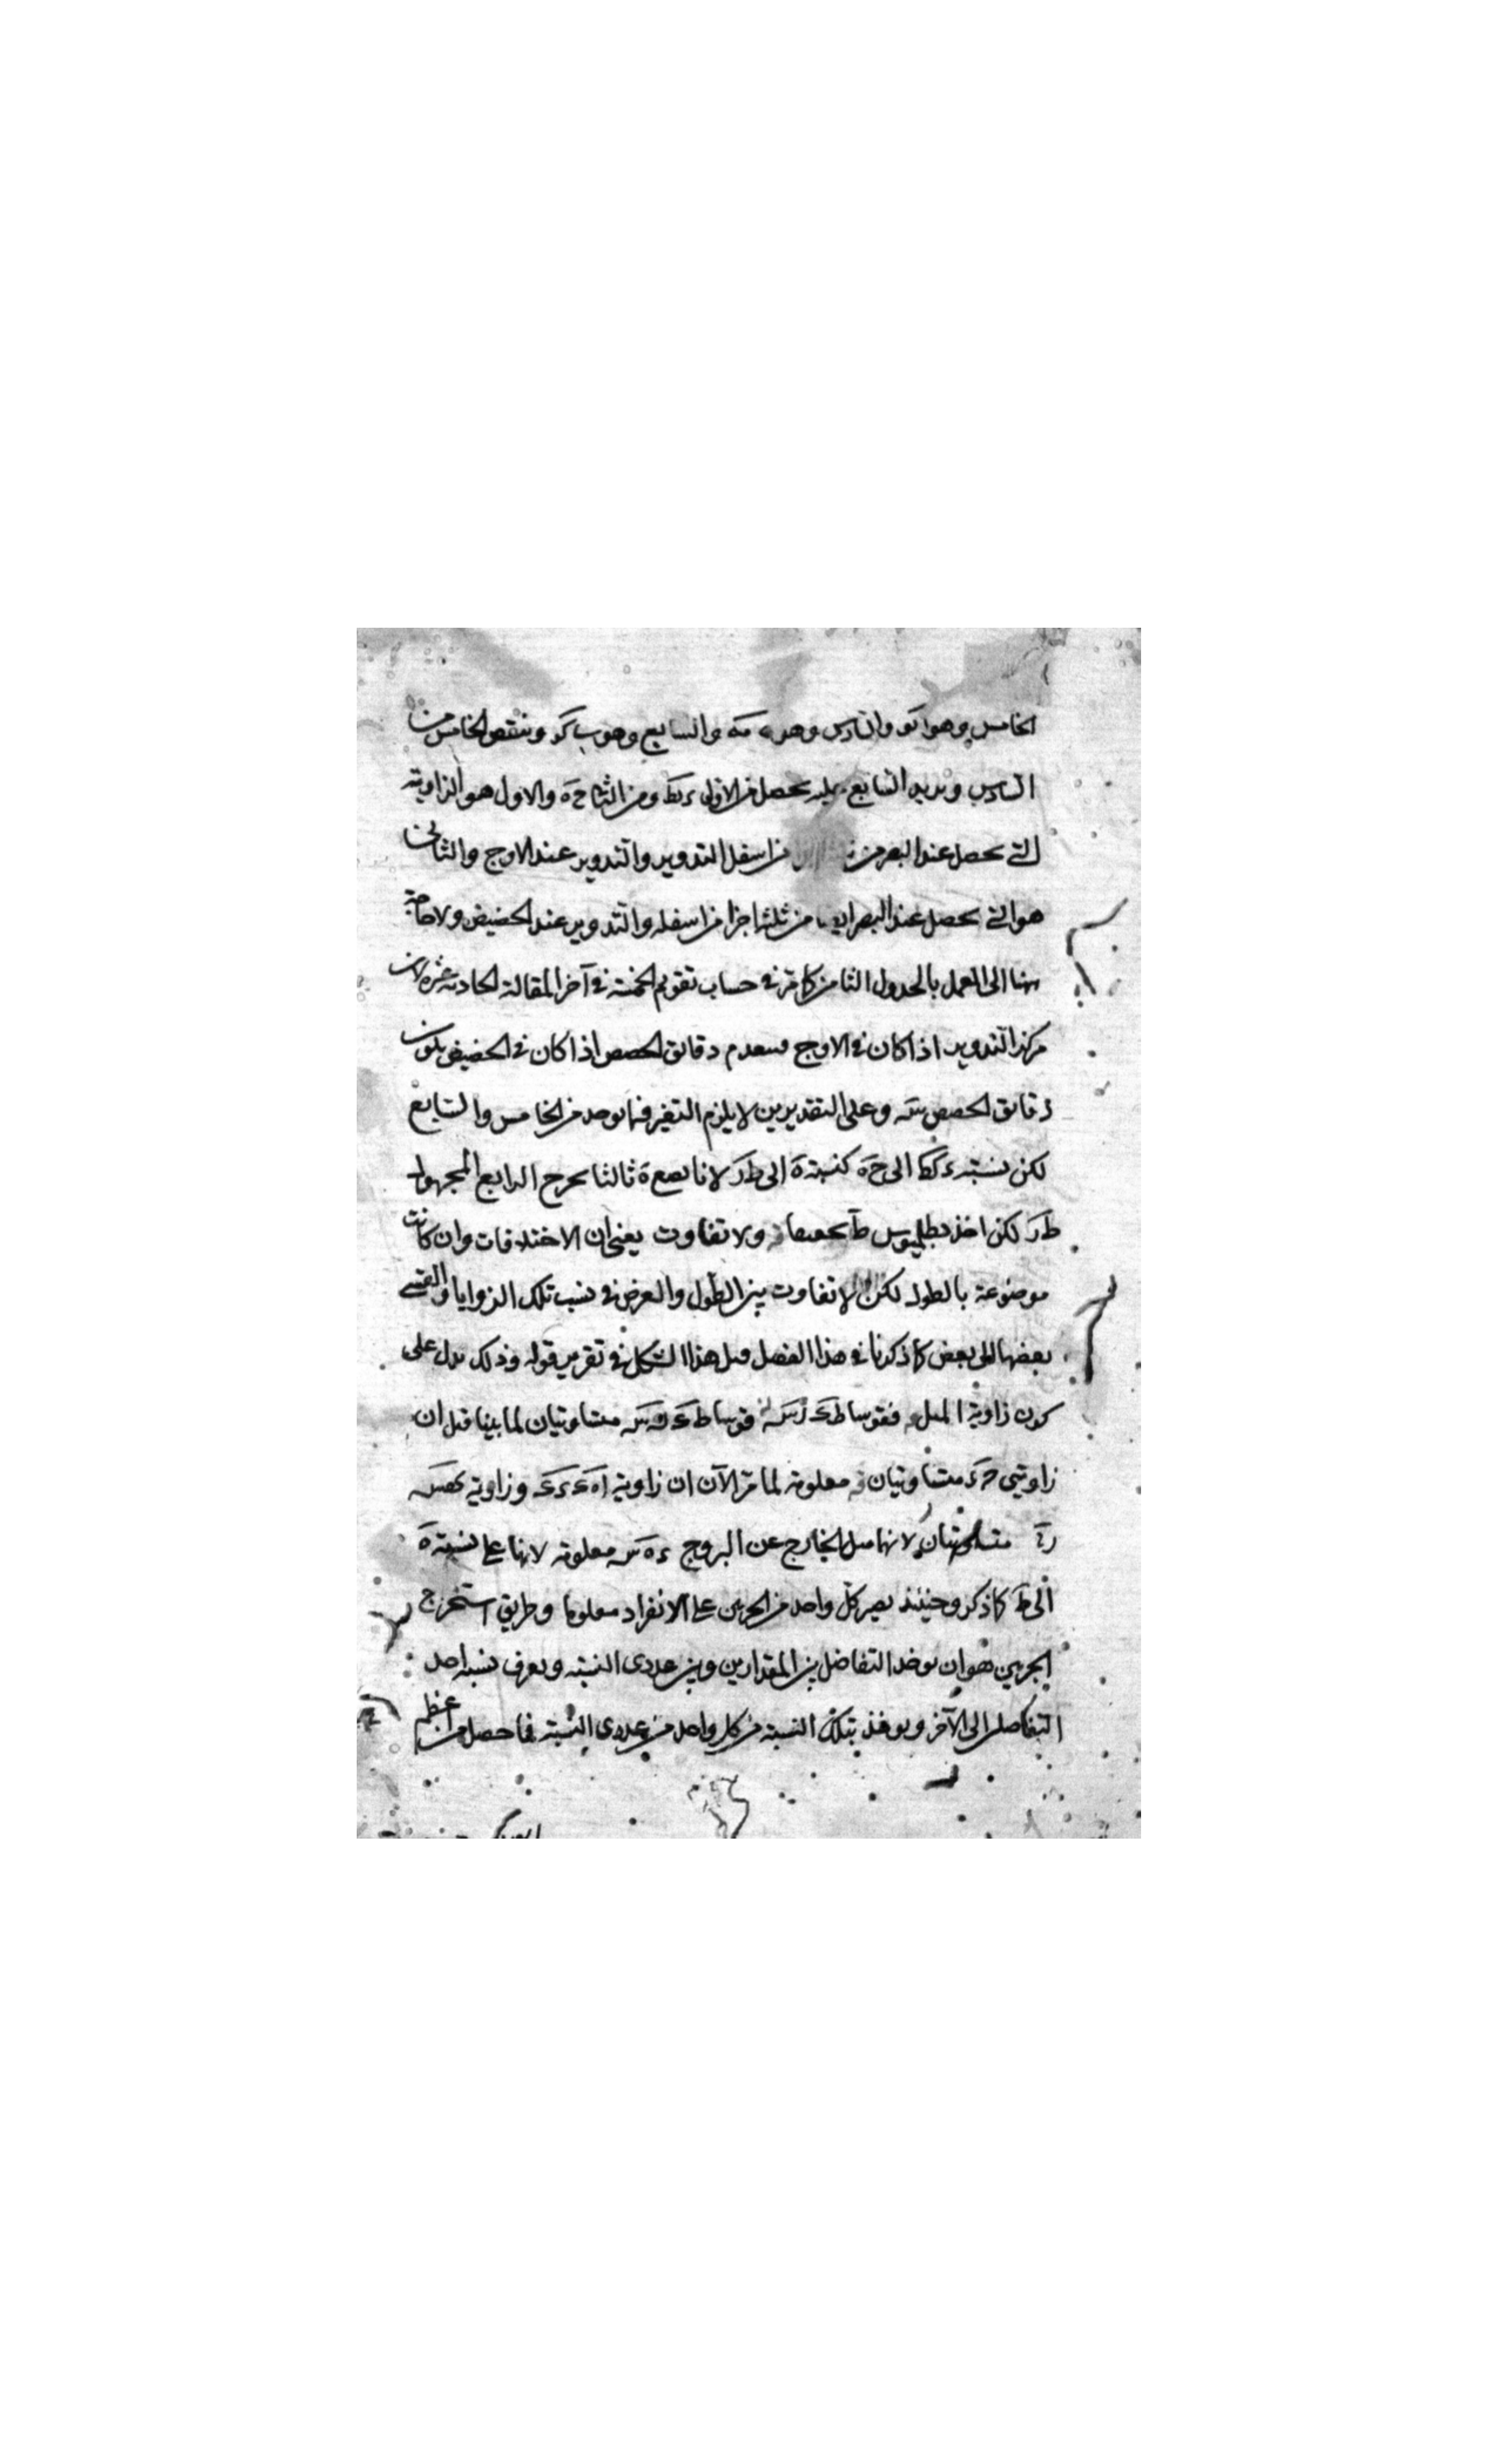 الخامس وهو ا كو والسادس وهو ه مه والسابع وهو ب كد وننقص الخامس من
السادس ونزيد السابع عليه يحصل من الاول ء كط ومن الثاني ح ه والاول هو الزاوية
التي تحصل عند البصر من من اسفل التدوير والتدوير عند الاوج والثاني
هو التي تحصل عند البصر ايضا من ثلثة اجزا من اسفله والتدوير عند الحضيض ولا حاجة
ههنا الى العمل بالجدول الثامن كما مر في حساب تقويم الخمسة في آخر المقالة الحادية عشرة لان
مركز التدوير اذا كان في الاوج فينعدم دقائق الحصص واذا كان في الحضيض يكون
دقائق الحصص س وعلى التقديرين لا يلزم التغير فيما يوجد من الخامس والسابع
لكن نسبة ء كط الى ح ه كنسبة ه الى ط ر لانا نضع ه ثالثا يخرج الرابع المجهول
ط ر لكن اخذ بطليموس ط تخفيفا ولا تفاوت يعني ان الاختلافات وان كانت
موضوعة بالطول لكن لا تفاوت بين الطول والعرض في نسب تلك الزوايا والقسي
بعضها الى بعض كما ذكرنا في هذا الفصل قبل هذا الشكل في تقرير قوله وذلك يدل على
كون زاوية الميل فقوسا متساويتان لما بينا قبل ان
زاويتي متساويتان معلومة لما مر الآن ان زاوية وزاوية
متساويتان لانهما ميل الخارج عن البروج معلومة لانها على نسبة ه
الى ط كما ذكر وحينئذ يصير كل واحد من الجزئين على الانفراد معلوما وطريق استخراج
الجزئين هو ان يوخذ التفاضل بين المقدارين وبين عددي النسبة ويعرف نسبة احد
التفاضلين الى الآخر ويوخذ بتلك النسبة من كل واحد من عددي النسبة فما حصل من اعظم